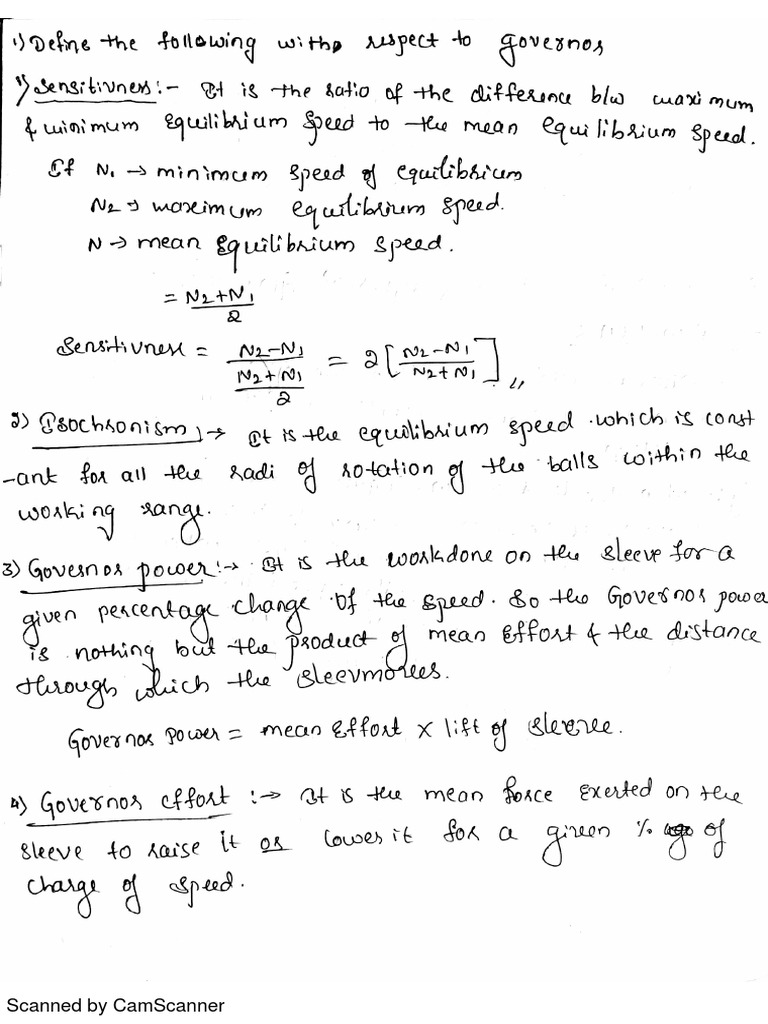 1) Define the following with respect to governor
1) Sensitivness :- It is the ratio of the difference b/w maximum
& minimum Equilibrium Speed to the mean equilibrium speed.
If N1 → minimum speed of equilibrium
N2 → maximum equilibrium speed.
N → mean Equilibrium speed.
= N2+N1 / 2
Sensitivness = N2-N1 / (N2+N1 / 2) = 2 [ N2-N1 / N2+N1 ] ,,
2) Isochronism :→ It is the equilibrium speed which is const
-ant for all the radi of rotation of the balls within the
working range.
3) Governor power :→ It is the workdone on the sleeve for a
given percentage change of the speed. So the Governor power
is nothing but the product of mean Effort & the distance
through which the sleevmovees.
Governor power = mean Effort x lift of sleeve.
4) Governor effort :→ It is the mean force exerted on the
sleeve to raise it or lower it for a given % age of
change of speed.
Scanned by CamScanner